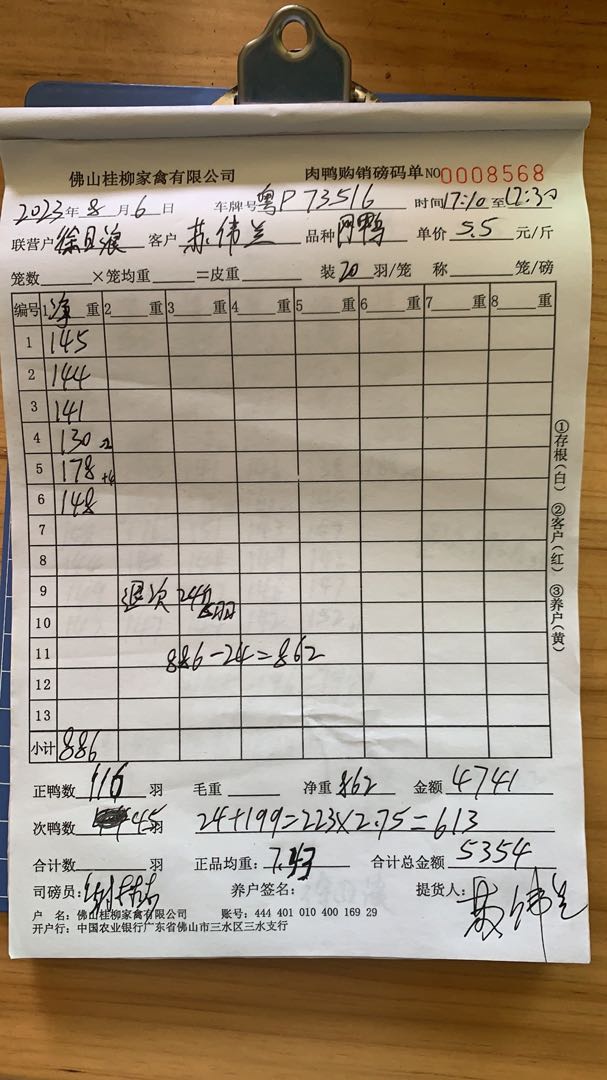 佛山桂柳家禽有限公司 肉鸭购销磅码单 NO 0008568
2023年8月6日 车牌号粤P73516 时间17:10至17:30
联营户 客户 苏伟兰 品种 网鸭 单价 5.5 元/斤
笼数 ×笼均重 =皮重 装20羽/笼 称 笼/磅
编号 1净重 2 重 3 重 4 重 5 重 6 重 7 重 8 重
1 145
2 144
3 141
4 130 -2
5 178 +4
6 148
7
8
9 退次 24斤
10 5羽
11 886-24=862
12
13
小计 886
正鸭数 116 羽 毛重 净重 862 金额 4741
次鸭数 45 羽 24+199=223×2.75=613
合计数 羽 正品均重: 7.43 合计总金额 5354
司磅员: 养户签名: 提货人: 苏伟兰
户 名: 佛山桂柳家禽有限公司 账号: 444 401 010 400 169 29
开户行: 中国农业银行广东省佛山市三水区三水支行
①存根(白) ②客户(红) ③养户(黄)